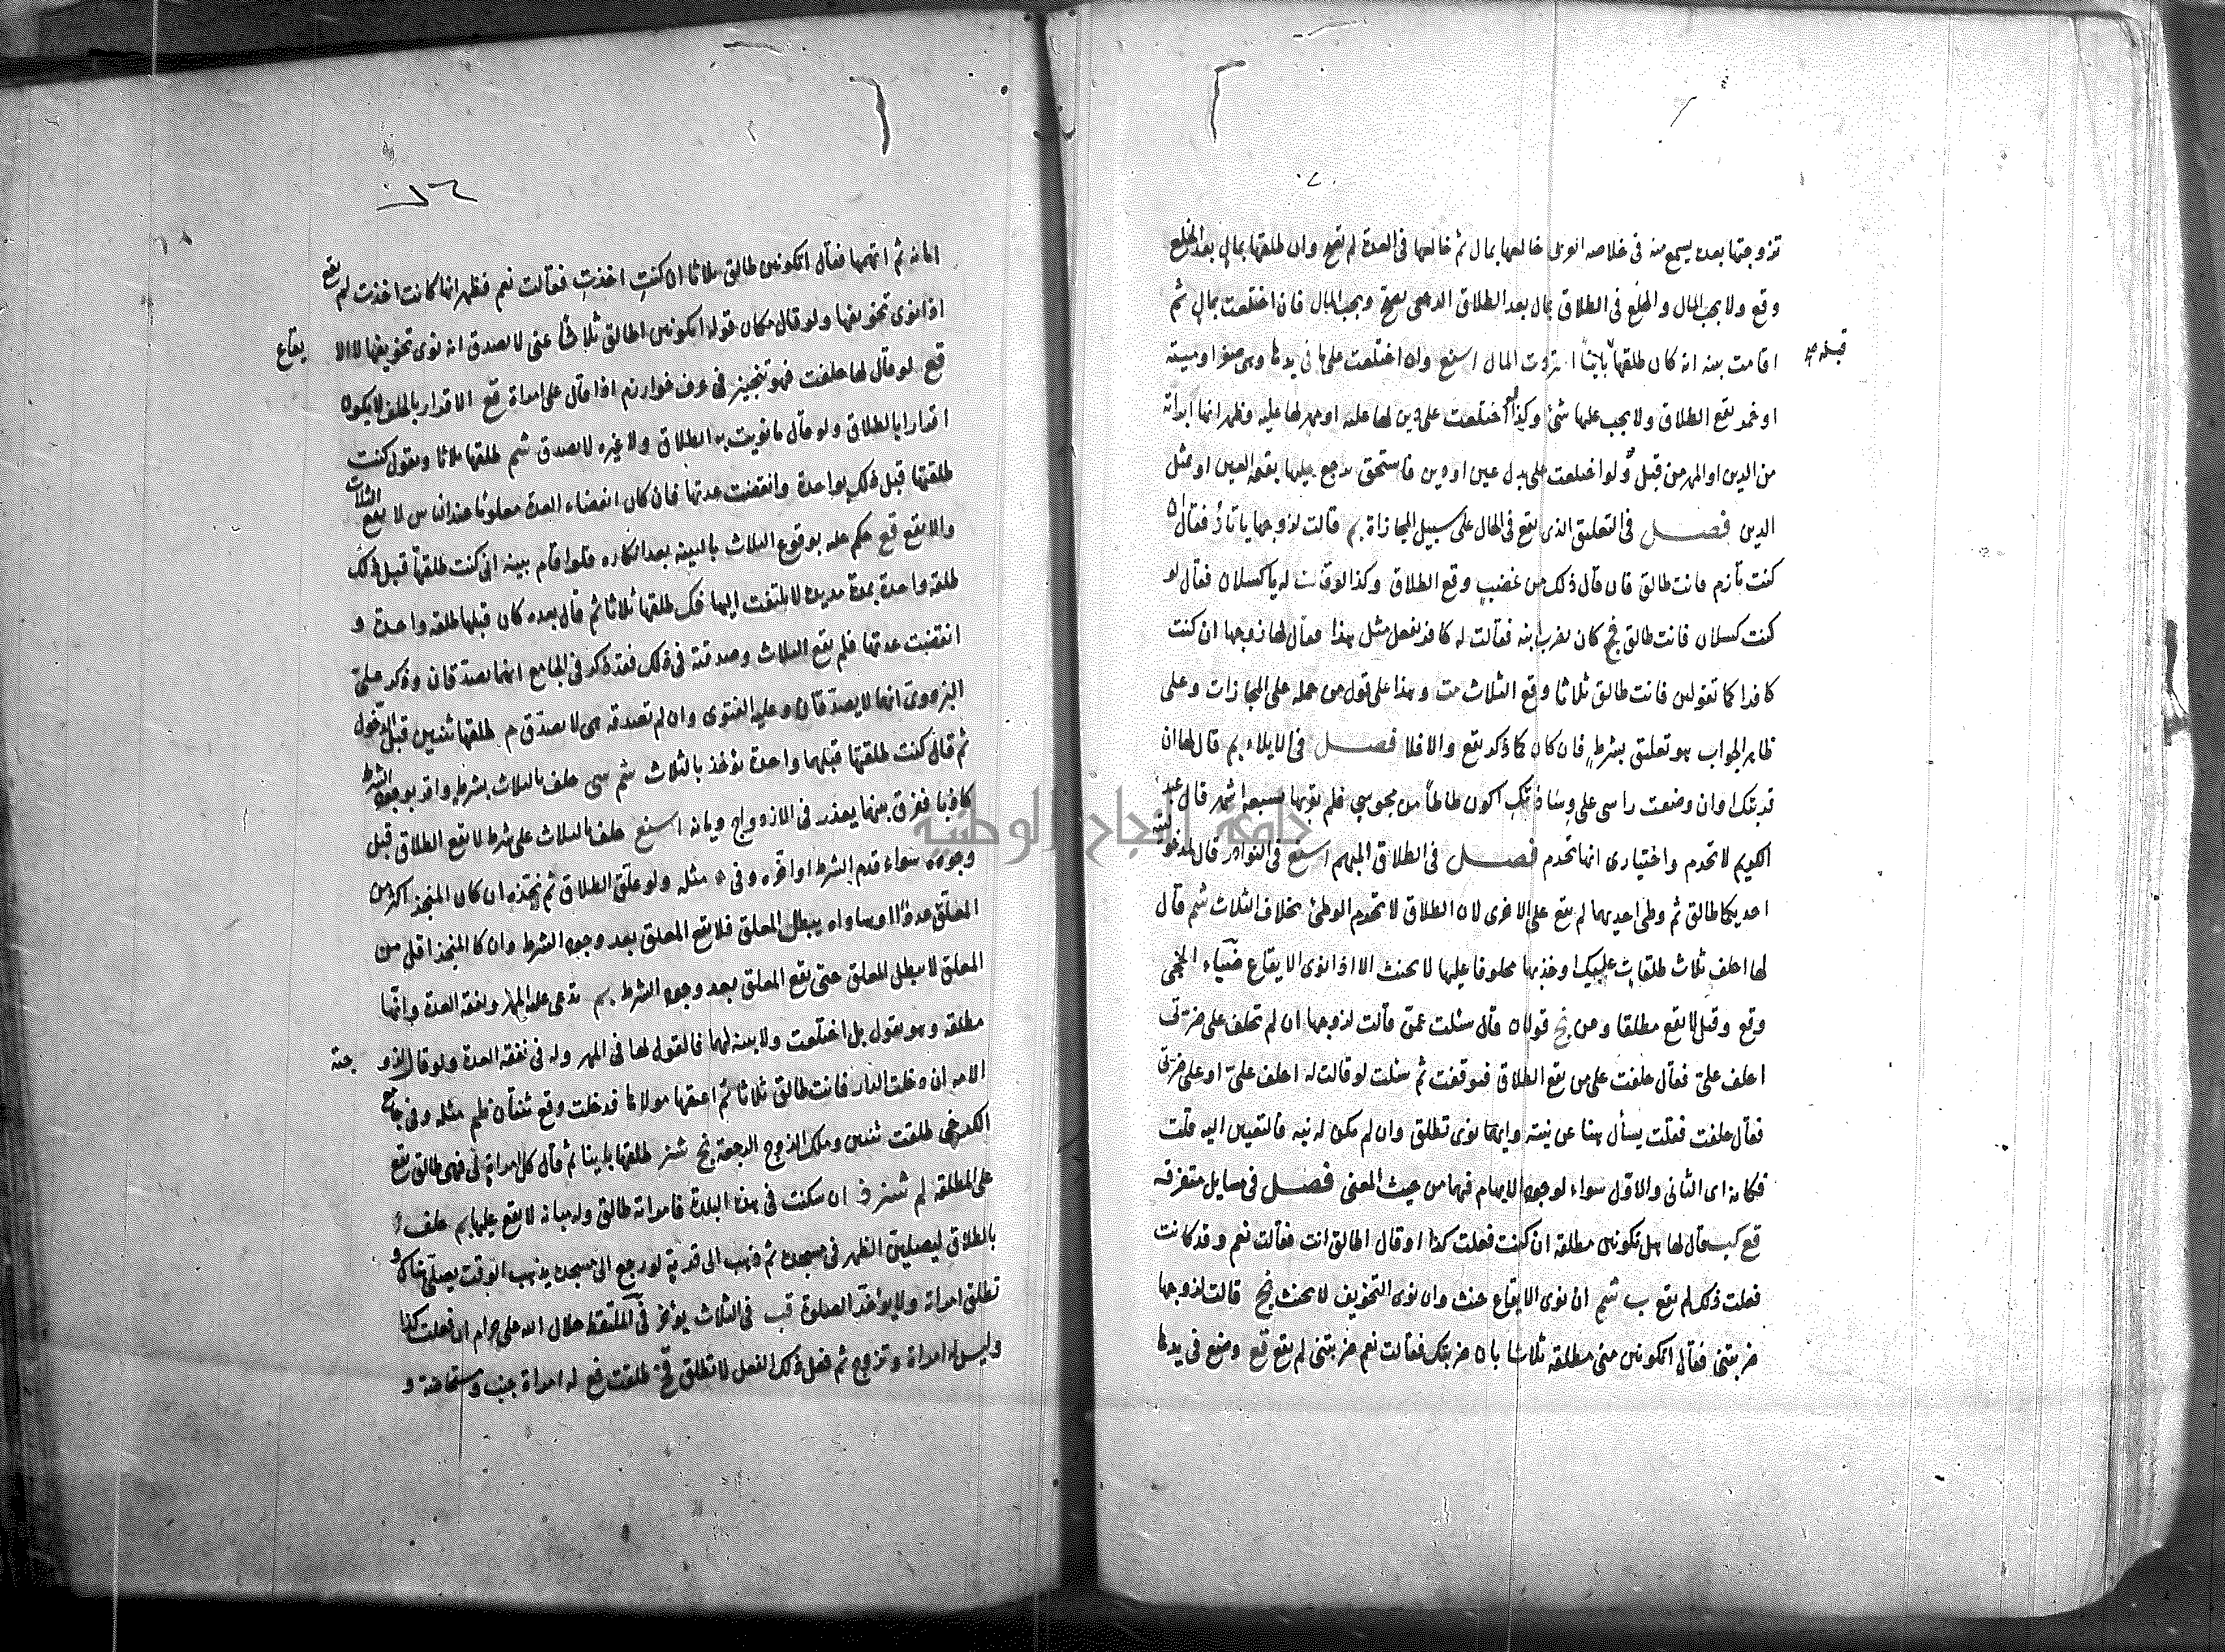 تزوجتها بعده يسمع منه في خلاصه خالعها بمال ثم خالعها في العدة لم يصح وان طلقها بمال بعد الخلع
وقع ولا يجب المال والخلع في الطلاق بمال بعد الطلاق الرجعي يصح ويجب المال فان اختلعت بمال ثم
اقامت بينه انه كان طلقها بائنا استردت المال وان اختلعت على ما في يدها وهي صفر او ميتة
قبله
او خمر يقع الطلاق ولا يجب عليها شئ وكذا لو اختلعت على دين لها عليه او مهر لها عليه وظهر انها ابراته
من الدين او المهر من قبل ولو اختلعت على بدل عين او دين فاستحق يرجع عليها بقيمة العين او مثل
الدين فصل في التعليق الذي يقع في الحال على سبيل المجازاة بم قالت لزوجها فقال ان
كنت فانت طالق فان قال ذلك من غضب وقع الطلاق وكذا لو قالت له يا كسلان فقال لو
كنت كسلان فانت طالق نج كان يضرب ابنه فقالت له كافر يفعل مثل هذا فقال لها زوجها ان كنت
كافرا كما تقولين فانت طالق ثلاثا وقع الثلاث وهذا على قول من حمله على المجازات وعلى
ظاهر الجواب هو تعليق بشرط فان كان كما ذكر يقع والا فلا فصل في الايلاء بم قال لها ان
قربتك او ان وضعت راسي على وسادتك اكون من مجوسي فلم يقربها سبعة اشهر قال عبد
الكريم لا تحرم واختياري انها تحرم فصل في الطلاق المبهم في النوادر قال لمدخولتيه
احديكما طالق ثم وطئ احديهما لم يقع على الاخرى لان الطلاق لا يحرم الوطئ بخلاف الثلاث شم قال
لها احلف ثلاث طلقات عليك وخذيها محلوفا عليها لا يحنث الا اذا نوى الايقاع ضياء
وقع وقيل لا يقع مطلقا وعن نج قولان قال سئلت عمن قالت لزوجها ان لم تحلف على ضرتي
احلف علي فقال حلفت على من يقع الطلاق فتوقفت ثم سئلت لو قالت له احلف علي او على ضرتي
فقال حلفت فقلت يسأل هنا عن نيته وايهما نوى تطلق وان لم يكن له نيه فالتعيين اليه قلت
فكانه اي الثاني والاول سواء لوجود الابهام فيهما من حيث المعنى فصل في مسايل متفرقه
قع قال لها هل تكونين مطلقه ان كنت فعلت كذا او قال اطالق انت فقالت نعم وقد كانت
فعلت ذلك لم يقع شم ان نوى الايقاع حنث وان نوى التخويف لا يحنث نج قالت لزوجها
ضربتني فقال اتكونين مني مطلقه ثلاثا بان ضربتك فقالت نعم ضربتني لم يقع قع وضع في يدها
امانه ثم اتهمها فقال اتكونين طالق ثلاثا ان كنت اخذت فقالت نعم فظهر انها كانت اخذت لم يقع
اذا نوى تخويفها ولو قال مكان قوله اتكونين اطالق ثلاثا عني لا يصدق انه نوى تخويفها لا الا
يقاع
قع لو قال لها حلفت فهو تنجيز في عرف خوارزم اذا قال على امراة قع الاقرار بالحلف لا يكون
اقرارا بالطلاق ولو قال ما نويت به الطلاق ولا غيره لا يصدق شم طلقها ثلاثا ويقول كنت
طلقتها قبل ذلك بواحدة وانقضت عدتها فان كان انقضاء العدة معلوما عند الناس لا يقع الثلاث
والا يقع قع حكم عليه بوقوع الثلاث بالبينه بعد انكاره فلو اقام بينه اني كنت طلقتها قبل ذلك
طلقه واحدة بمدة مديدة لا يلتفت اليها فك طلقها ثلاثا ثم قال بعده كان قبلها طلقه واحدة و
انقضت عدتها فلم يقع الثلاث وصدقته في ذلك فقد ذكر في الجامع انهما يصدقان وذكر علي
البزدوي انهما لا يصدقان وعليه الفتوى وان لم تصدقه هي لا يصدق م طلقها ثنتين قبل الدخول
ثم قال كنت طلقتها قبلهما واحدة يؤخذ بالثلاث شم سي حلف بالثلاث بشرط واقر بوجود الشرط
كاذبا ففرق بينهما يعذر في الازدواج ديانه حلف بالثلاث على شرط لا يقع الطلاق قبل
وجوده سواء قدم الشرط او اخره وفي مثله ولو علق الطلاق ثم نجزه ان كان المنجز اكثر من
المعلق عددا او ساواه يبطل المعلق فلا يقع المعلق بعد وجود الشرط وان كا المنجز اقل من
المعلق لا يبطل المعلق حتى يقع المعلق بعد وجود الشرط بم تدعي عليه المهر ونفقة العدة وانها
مطلقه وهو يقول بل اختلعت ولا بينه لهما فالقول لها في المهر وله في نفقه العدة ولو قال لزو
جته
الامه ان دخلت الدار فانت طالق ثلاثا ثم اعتقها مولاها فدخلت وقع ثنتان ظم مثله وفي جامع
الكرخي طلقت ثنتين وملك الزوج الرجعة نج طلقها بائنا ثم قال كل امراة لي فهي طالق يقع
على المطلقه لم ان سكنت في هذه البلدة فامراته طالق وله مبانه لا يقع عليها بم حلف
بالطلاق ليصلين الظهر في مسجده ثم ذهب الى قرية لو رجع الى مسجده يذهب الوقت يصلي هناك و
تطلق امراته ولا يؤخر الصلوة قب في الثلاث يؤخر في الملتقط حلال الله علي حرام ان فعلت كذا
وليس له امراة وتزوج ثم فعل ذلك الفعل لا تطلق طلقت قع له امراة جنب ومستحاضة و
جامعة النجاح الوطنية